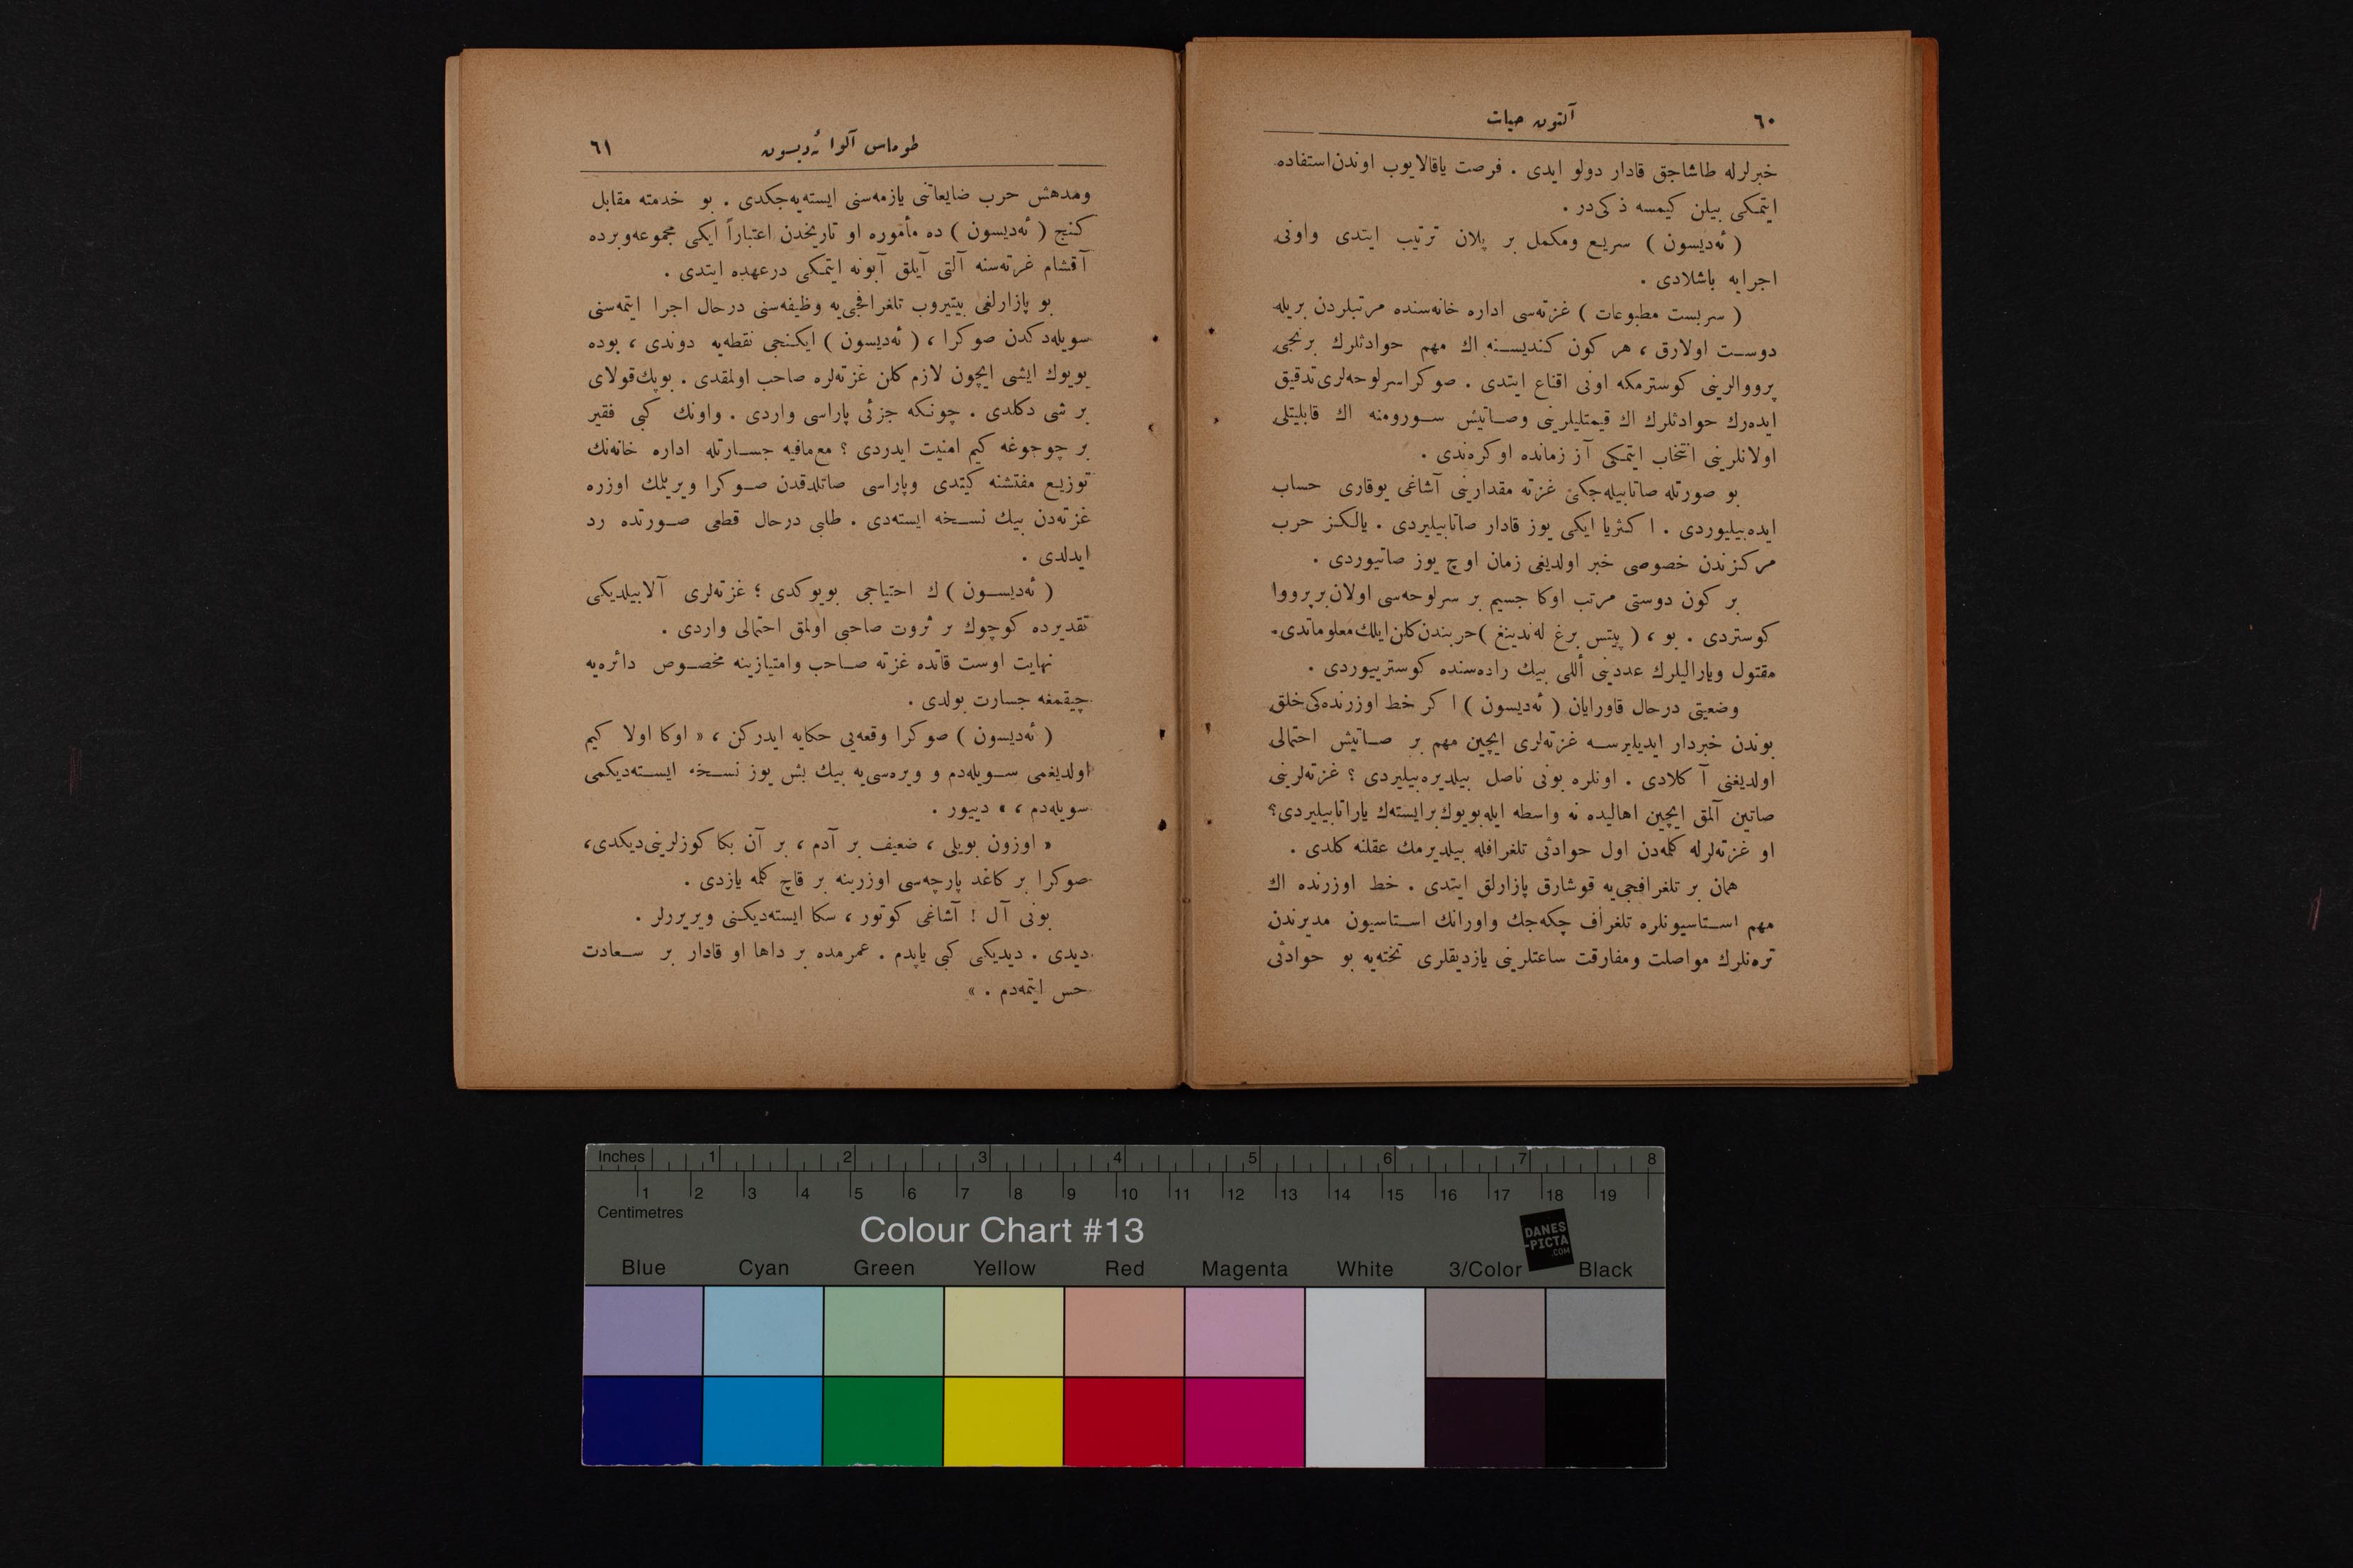 ٦٠
آلتون حیات
خبرلرله طاشاجق قادار دولو ایدی . فرصت یاقالایوب اوندن استفاده
ایتمكی بیلن كیمسه ذكی‌در .
( ئه‌دیسون ) سریع ومكمل بر پلان ترتیب ایتدی واونی
اجرایه باشلادی .
( سربست مطبوعات ) غزته‌سی اداره خانه‌سنده مرتبلردن بریله
دوست اولارق ، هر كون كندیسنه اك مهم حوادثلرك برنجی
پرووالرینی كوسترمكه اونی اقناع ایتدی . صوكرا سرلوحه‌لری تدقیق
ایده‌رك حوادثلرك اك قیمتلیلرینی وصاتیش سورومنه اك قابلیتلی
اولانلرینی انتخاب ایتمكی آز زمانده اوكره‌ندی .
بو صورتله صاتابیله‌جكی غزته مقدارینی آشاغی یوقاری حساب
ایده‌بیلیوردی . اكثریا ایكی یوز قادار صاتابیلیردی . یالكز حرب
مركزندن خصوصی خبر اولدیغی زمان اوچ یوز صاتیوردی .
بر كون دوستی مرتب اوكا جسیم بر سرلوحه‌سی اولان بر پرووا
كوستردی . بو ، ( پیتس برغ له‌ندینغ ) حربندن كلن ایلك معلوماتدی.
مقتول ویارالیلرك عددینی أللی بیك راده‌سنده كوسترییوردی .
وضعیتی درحال قاورایان ( ئه‌دیسون ) اكر خط اوزرنده‌كی خلق
بوندن خبردار ایدیلیرسه غزته‌لری ایچین مهم بر صاتیش احتمالی
اولدیغنی آكلادی . اونلره بونی ناصل بیلدیره‌بیلیردی ؟ غزته‌لرینی
صاتین آلمق ایچین اهالیده نه واسطه ایله بویوك بر ایسته‌ك یاراتابیلیردی؟
او غزته‌لرله كلمه‌دن اول حوادثی تلغرافله بیلدیرمك عقلنه كلدی .
همان بر تلغرافجی‌یه قوشارق پازارلق ایتدی . خط اوزرنده اك
مهم استاسیونلره تلغراف چكه‌جك واورانك استاسیون مدیرندن
تره‌نلرك مواصلت ومفارقت ساعتلرینی یازدیقلری تخته‌یه بو حوادثی
طوماس آلوا ئه‌دیسون
٦١
ومدهش حرب ضایعاتنی یازمه‌سنی ایسته‌یه‌جكدی . بو خدمته مقابل
كنج ( ئه‌دیسون ) ده مأموره او تاریخدن اعتباراً ایكی مجموعه‌وبرده
آقشام غزته‌سنه آلتی آیلق آبونه ایتمكی درعهده ایتدی .
بو پازارلغی بیتیروب تلغرافجی‌یه وظیفه‌سنی درحال اجرا ایتمه‌سنی
سویله‌دكدن صوكرا ، ( ئه‌دیسون ) ایكنجی نقطه‌یه دوندی ، بوده
بویوك ایشی ایچون لازم كلن غزته‌لره صاحب اولمقدی . بوپك قولای
بر شی دكلدی . چونكه جزئی پاراسی واردی . واونك كبی فقیر
بر چوجوغه كیم امنیت ایدردی ؟ مع‌مافیه جسارتله اداره خانه‌نك
توزیع مفتشنه كیتدی وپاراسی صاتلدقدن صوكرا ویریلمك اوزره
غزته‌دن بیك نسخه ایسته‌دی . طلبی درحال قطعی صورتده رد
ایدلدی .
( ئه‌دیسون ) ك احتیاجی بویوكدی ؛ غزته‌لری آلابیلدیكی
تقدیرده كوچوك بر ثروت صاحبی اولمق احتمالی واردی .
نهایت اوست قاتده غزته صاحب وامتیازینه مخصوص دائره‌یه
چیقمغه جسارت بولدی .
( ئه‌دیسون ) صوكرا وقعه‌یی حكایه ایدركن ، « اوكا اولا كیم
اولدیغمی سویله‌دم و ویره‌سی‌یه بیك بش یوز نسخه ایسته‌دیكمی
سویله‌دم ، » دییور .
« اوزون بویلی ، ضعیف بر آدم ، بر آن بكا كوزلرینی دیكدی،
صوكرا بر كاغد پارچه‌سی اوزرینه بر قاچ كلمه یازدی .
بونی آل ! آشاغی كوتور ، سكا ایسته‌دیكنی ویریررلر .
دیدی . دیدیكی كبی یاپدم . عمرمده بر داها او قادار بر سعادت
حس ایتمه‌دم . »
Inches 1 2 3 4 5 6 7 8
1 2 3 4 5 6 7 8 9 10 11 12 13 14 15 16 17 18 19
Centimetres
Colour Chart #13
DANES
-PICTA
.COM
Blue Cyan Green Yellow Red Magenta White 3/Color Black